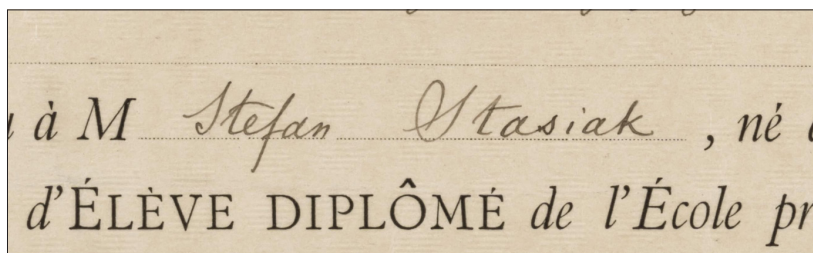 à M Stefan Stasiak, né
d'ÉLÈVE DIPLÔMÉ de l'École